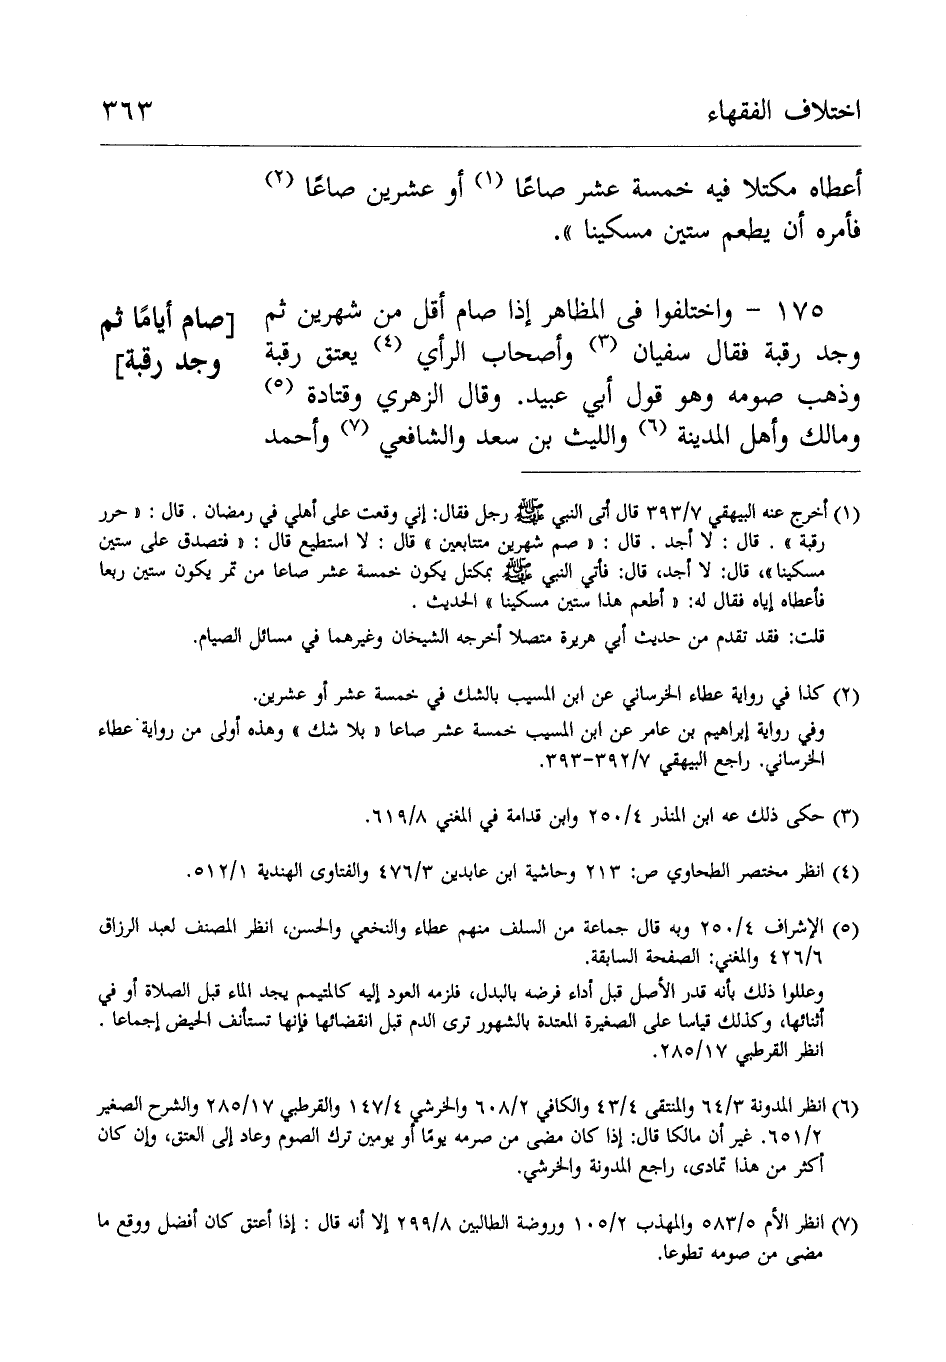 اختلاف الفقهاء ٣٦٣
أعطاه مكتلا فيه خمسة عشر صاعًا (١) أو عشرين صاعًا (٢)
فأمره أن يطعم ستين مسكينا ».
١٧٥ - واختلفوا فى المظاهر إذا صام أقل من شهرين ثم
وجد رقبة فقال سفيان (٣) وأصحاب الرأي (٤) يعتق رقبة
وذهب صومه وهو قول أبي عبيد. وقال الزهري وقتادة (٥)
ومالك وأهل المدينة (٦) والليث بن سعد والشافعي (٧) وأحمد
[صام أيامًا ثم
وجد رقبة]
(١) أخرج عنه البيهقي ٣٩٣/٧ قال أتى النبي ﷺ رجل فقال: إني وقعت على أهلي في رمضان . قال : « حرر
رقبة » . قال : لا أجد . قال : « صم شهرين متتابعين » قال : لا استطيع قال : « فتصدق على ستين
مسكينا»، قال: لا أجد، قال: فأتي النبي ﷺ بمكتل يكون خمسة عشر صاعا من تمر يكون ستين ربعا
فأعطاه إياه فقال له: « أطعم هذا ستين مسكينا » الحديث .
قلت: فقد تقدم من حديث أبي هريرة متصلا أخرجه الشيخان وغيرهما في مسائل الصيام.
(٢) كذا في رواية عطاء الخرساني عن ابن المسيب بالشك في خمسة عشر أو عشرين.
وفي رواية إبراهيم بن عامر عن ابن المسيب خمسة عشر صاعا « بلا شك » وهذه أولى من رواية عطاء
الخرساني. راجع البيهقي ٣٩٢/٧-٣٩٣.
(٣) حكى ذلك عه ابن المنذر ٢٥٠/٤ وابن قدامة في المغني ٦١٩/٨.
(٤) انظر مختصر الطحاوي ص: ٢١٣ وحاشية ابن عابدين ٤٧٦/٣ والفتاوى الهندية ٥١٢/١.
(٥) الإشراف ٢٥٠/٤ وبه قال جماعة من السلف منهم عطاء والنخعي والحسن، انظر المصنف لعبد الرزاق
٤٢٦/٦ والمغني: الصفحة السابقة.
وعللوا ذلك بأنه قدر الأصل قبل أداء فرضه بالبدل، فلزمه العود إليه كالمتيمم يجد الماء قبل الصلاة أو في
أثنائها، وكذلك قياسا على الصغيرة المعتدة بالشهور ترى الدم قبل انقضائها فإنها تستأنف الحيض إجماعا .
انظر القرطبي ٢٨٥/١٧.
(٦) انظر المدونة ٦٤/٣ والمنتقى ٤٣/٤ والكافي ٦٠٨/٢ والخرشي ١٤٧/٤ والقرطبي ٢٨٥/١٧ والشرح الصغير
٦٥١/٢. غير أن مالكا قال: إذا كان مضى من صرمه يومًا أو يومين ترك الصوم وعاد إلى العتق، وإن كان
أكثر من هذا تمادى، راجع المدونة والخرشي.
(٧) انظر الأم ٥٨٣/٥ والمهذب ١٠٥/٢ وروضة الطالبين ٢٩٩/٨ إلا أنه قال : إذا أعتق كان أفضل ووقع ما
مضى من صومه تطوعا.